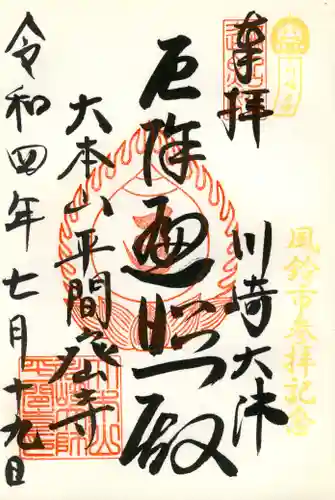 奉拝
川崎大沛
厄除遍照殿
大本山平間寺
令和四年七月十九日
風鈴市参拝記念